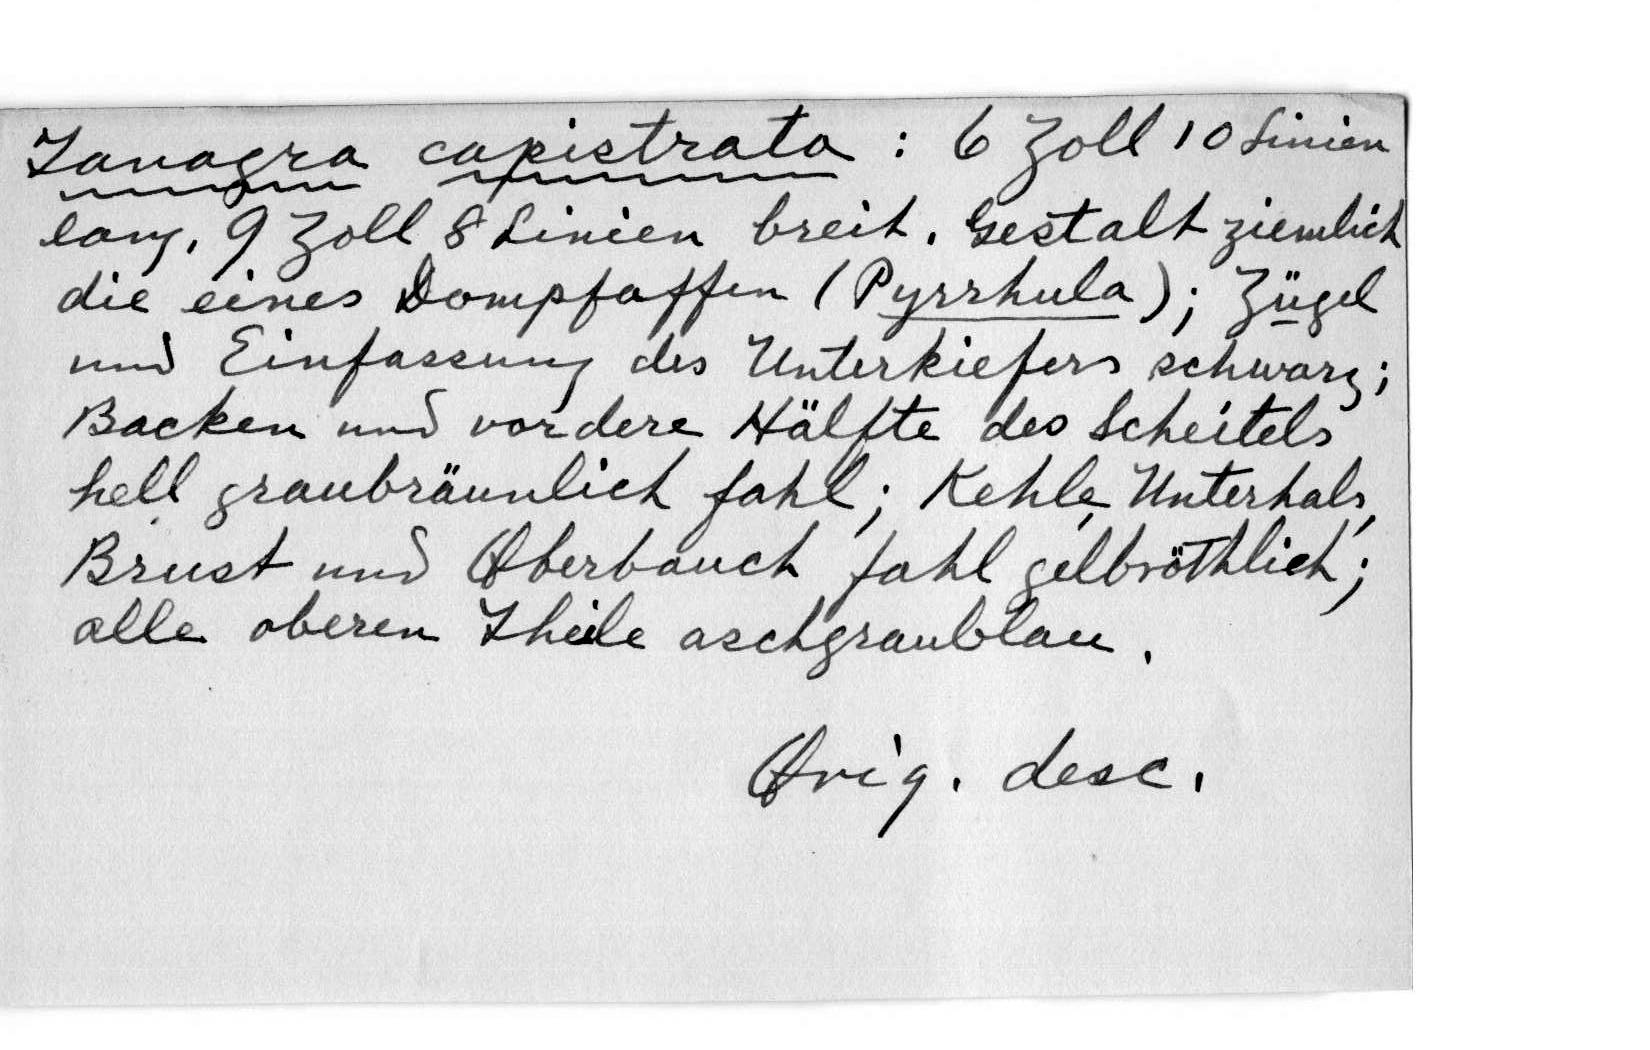 Tanagra capistrata : 6 Zoll 10 Linien
lang, 9 Zoll 8 Linien breit. Gestalt ziemlich
die eines Dompfaffen (Pyrrhula); Zügel
und Einfassung des Unterkiefers schwarz;
Backen und vordere Hälfte des Scheitels
hell graubräunlich fahl; Kehle, Unterhals,
Brust und Oberbauch fahl gelbröthlich;
alle oberen Theile aschgraublau.
Orig. desc.